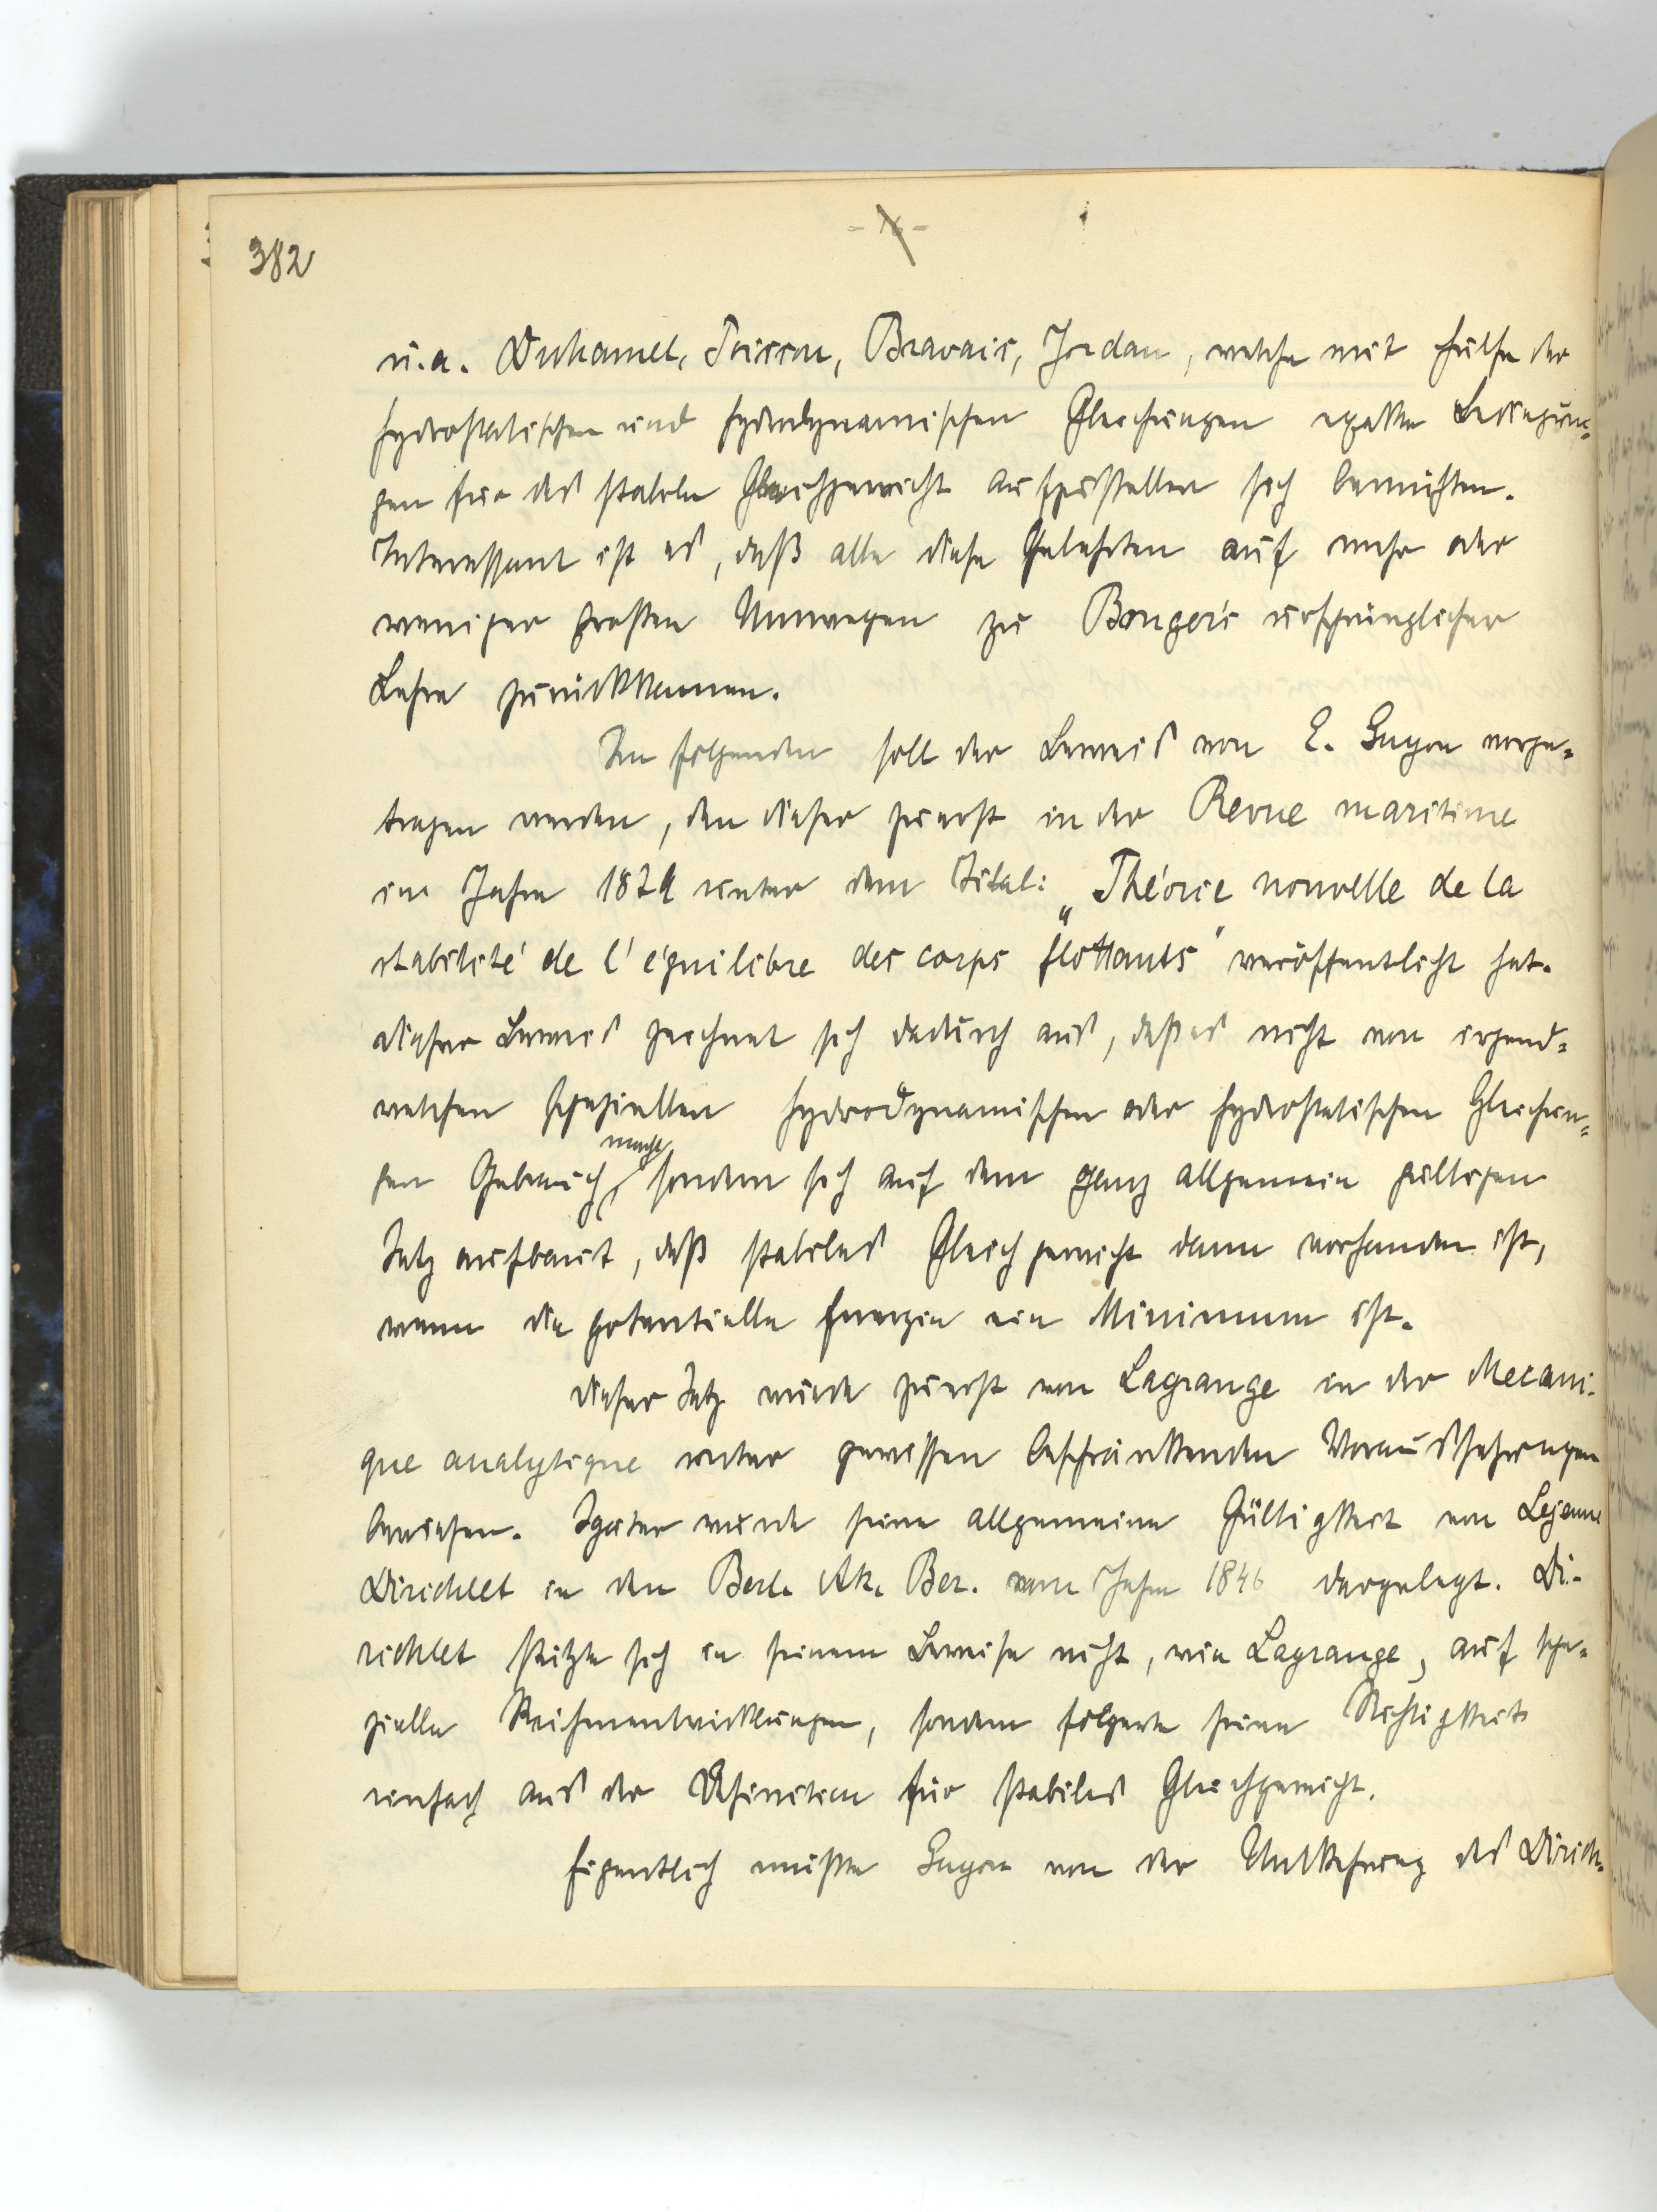 382
u.a. Duhamel, Poisson, Bravais, Jordan, welche mit Hülfe der
hydrostatischen und hydrodynamischen Gleichungen exakte Bedingun=
gen für das stabile Gleichgewicht aufzustellen sich bemühten.
Interessant ist es, daß alle diese Gelehrten auf mehr oder
weniger großen Umwegen zu Bouger's ursprünglicher
Lehre zurückkamen.
Im folgenden soll der Beweis von E. Guyou vorge=
tragen werden, den dieser zuerst in der Revue maritime
im Jahre 1879 unter dem Titel: „Théorie nouvelle de la
stabilité de l'équilibre des corps flottants" veröffentlicht hat.
Dieser Beweis zeichnet sich dadurch aus, daß es nicht von irgend=
welchen speziellen hydrodynamischen oder hydrostatischen Gleichun=
gen Gebrauch macht, sondern sich auf dem ganz allgemein gültigen
Satz aufbaut, daß stabiles Gleichgewicht dann vorhanden ist,
wenn die potentielle Energie ein Minimum ist.
Dieser Satz wurde zuerst von Lagrange in der Mecani-
que analytique unter gewissen beschränkenden Voraussetzungen
bewiesen. Später wurde seine allgemeine Gültigkeit von Lejeune
Dirichlet in den Berl. Ak. Ber. vom Jahre 1846 dargelegt. Di-
richlet stützte sich in seinem Beweise nicht, wie Lagrange, auf spe=
zielle Reihenentwicklungen, sondern folgerte seine Richtigkeit
einfach aus der Definition für stabiles Gleichgewicht.
Eigentlich müßte Guyou von der Umkehrung des Dirich-